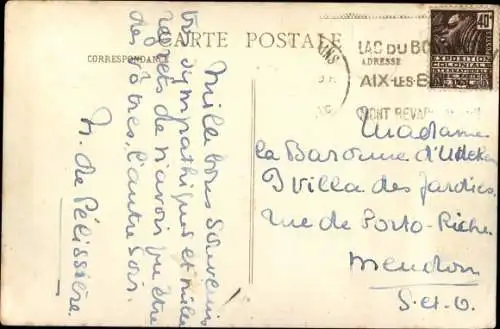 CARTE POSTALE
CORRESPONDANCE
ADRESSE
LAC DU
AIX-LES-B
MONT REVARD
40c
POSTES
EXPOSITION
COLONIALE
Mille bons souvenirs
très sympathiques et mille
regrets de n'avoir pu être
des vôtres, l'autre soir.
N. de Pélissière.
Madame
la Baronne d'
9 villa des Jardies
rue de Porto-Riche
Meudon
S-et-O.